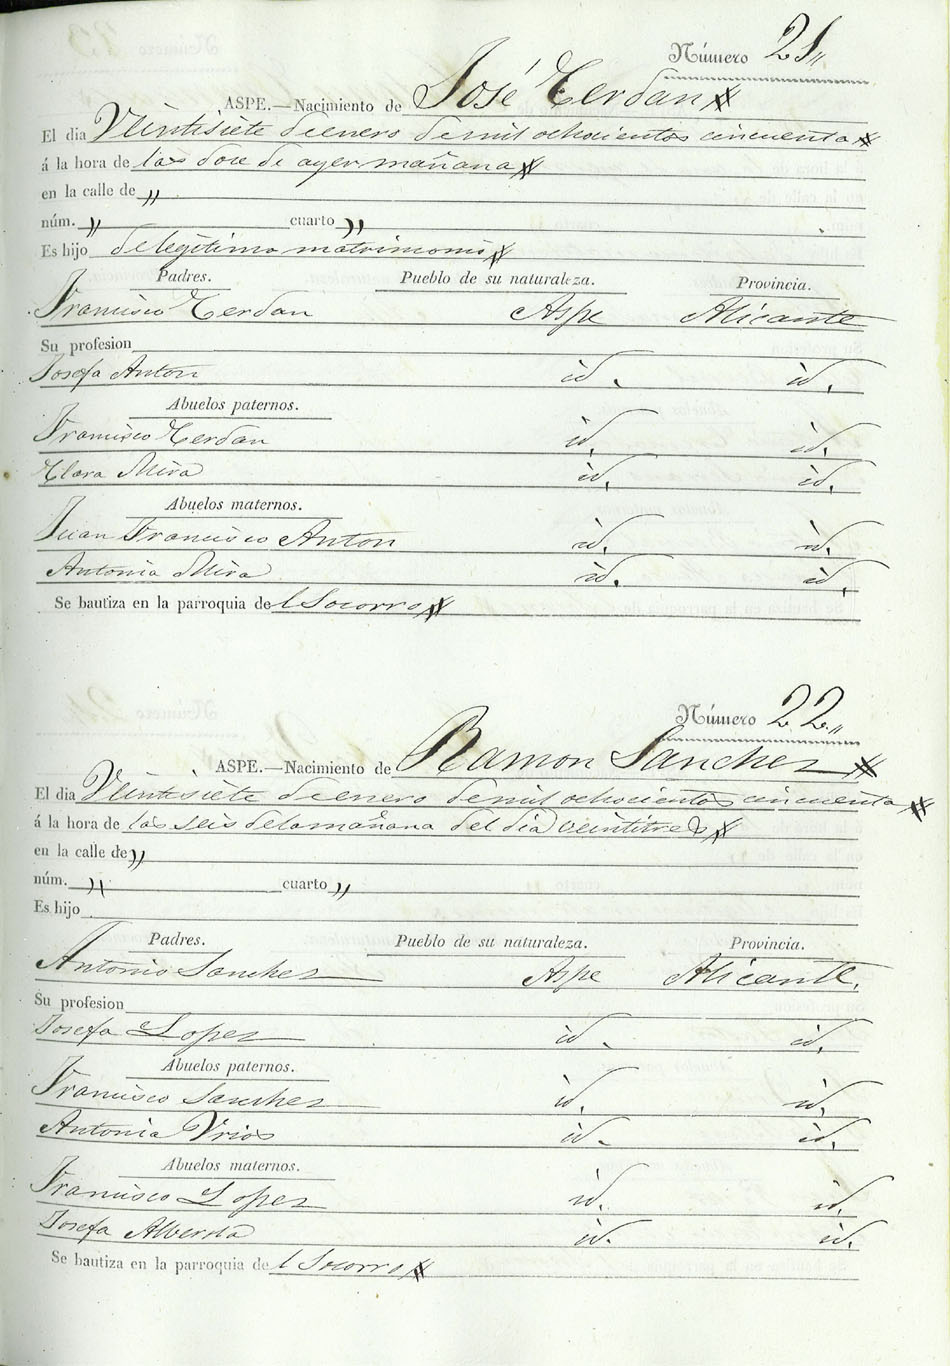 Número 21,,
ASPE.—Nacimiento de José Cerdan
El dia Veintisiete de enero de mil ochocientos cincuenta
á la hora de las doce de ayer mañana
en la calle de ,,
núm. ,, cuarto ,,
Es hijo de legitimo matrimonio
Padres. Pueblo de su naturaleza. Provincia.
Francisco Cerdan Aspe Alicante
Su profesion
Josefa Anton id. id.
Abuelos paternos.
Francisco Cerdan id. id.
Clara Mira id. id.
Abuelos maternos.
Juan Francisco Anton id. id.
Antonia Mira id. id.
Se bautiza en la parroquia del Socorro
Número 22,,
ASPE.—Nacimiento de Ramon Sanchez
El dia Veintisiete de enero de mil ochocientos cincuenta
á la hora de las seis de la mañana del dia veintitres
en la calle de ,,
núm. ,, cuarto ,,
Es hijo
Padres. Pueblo de su naturaleza. Provincia.
Antonio Sanchez Aspe Alicante.
Su profesion
Josefa Lopez id. id.
Abuelos paternos.
Francisco Sanchez id. id.
Antonia Vrios id. id.
Abuelos maternos.
Francisco Lopez id. id.
Josefa Alberola id. id.
Se bautiza en la parroquia del Socorro